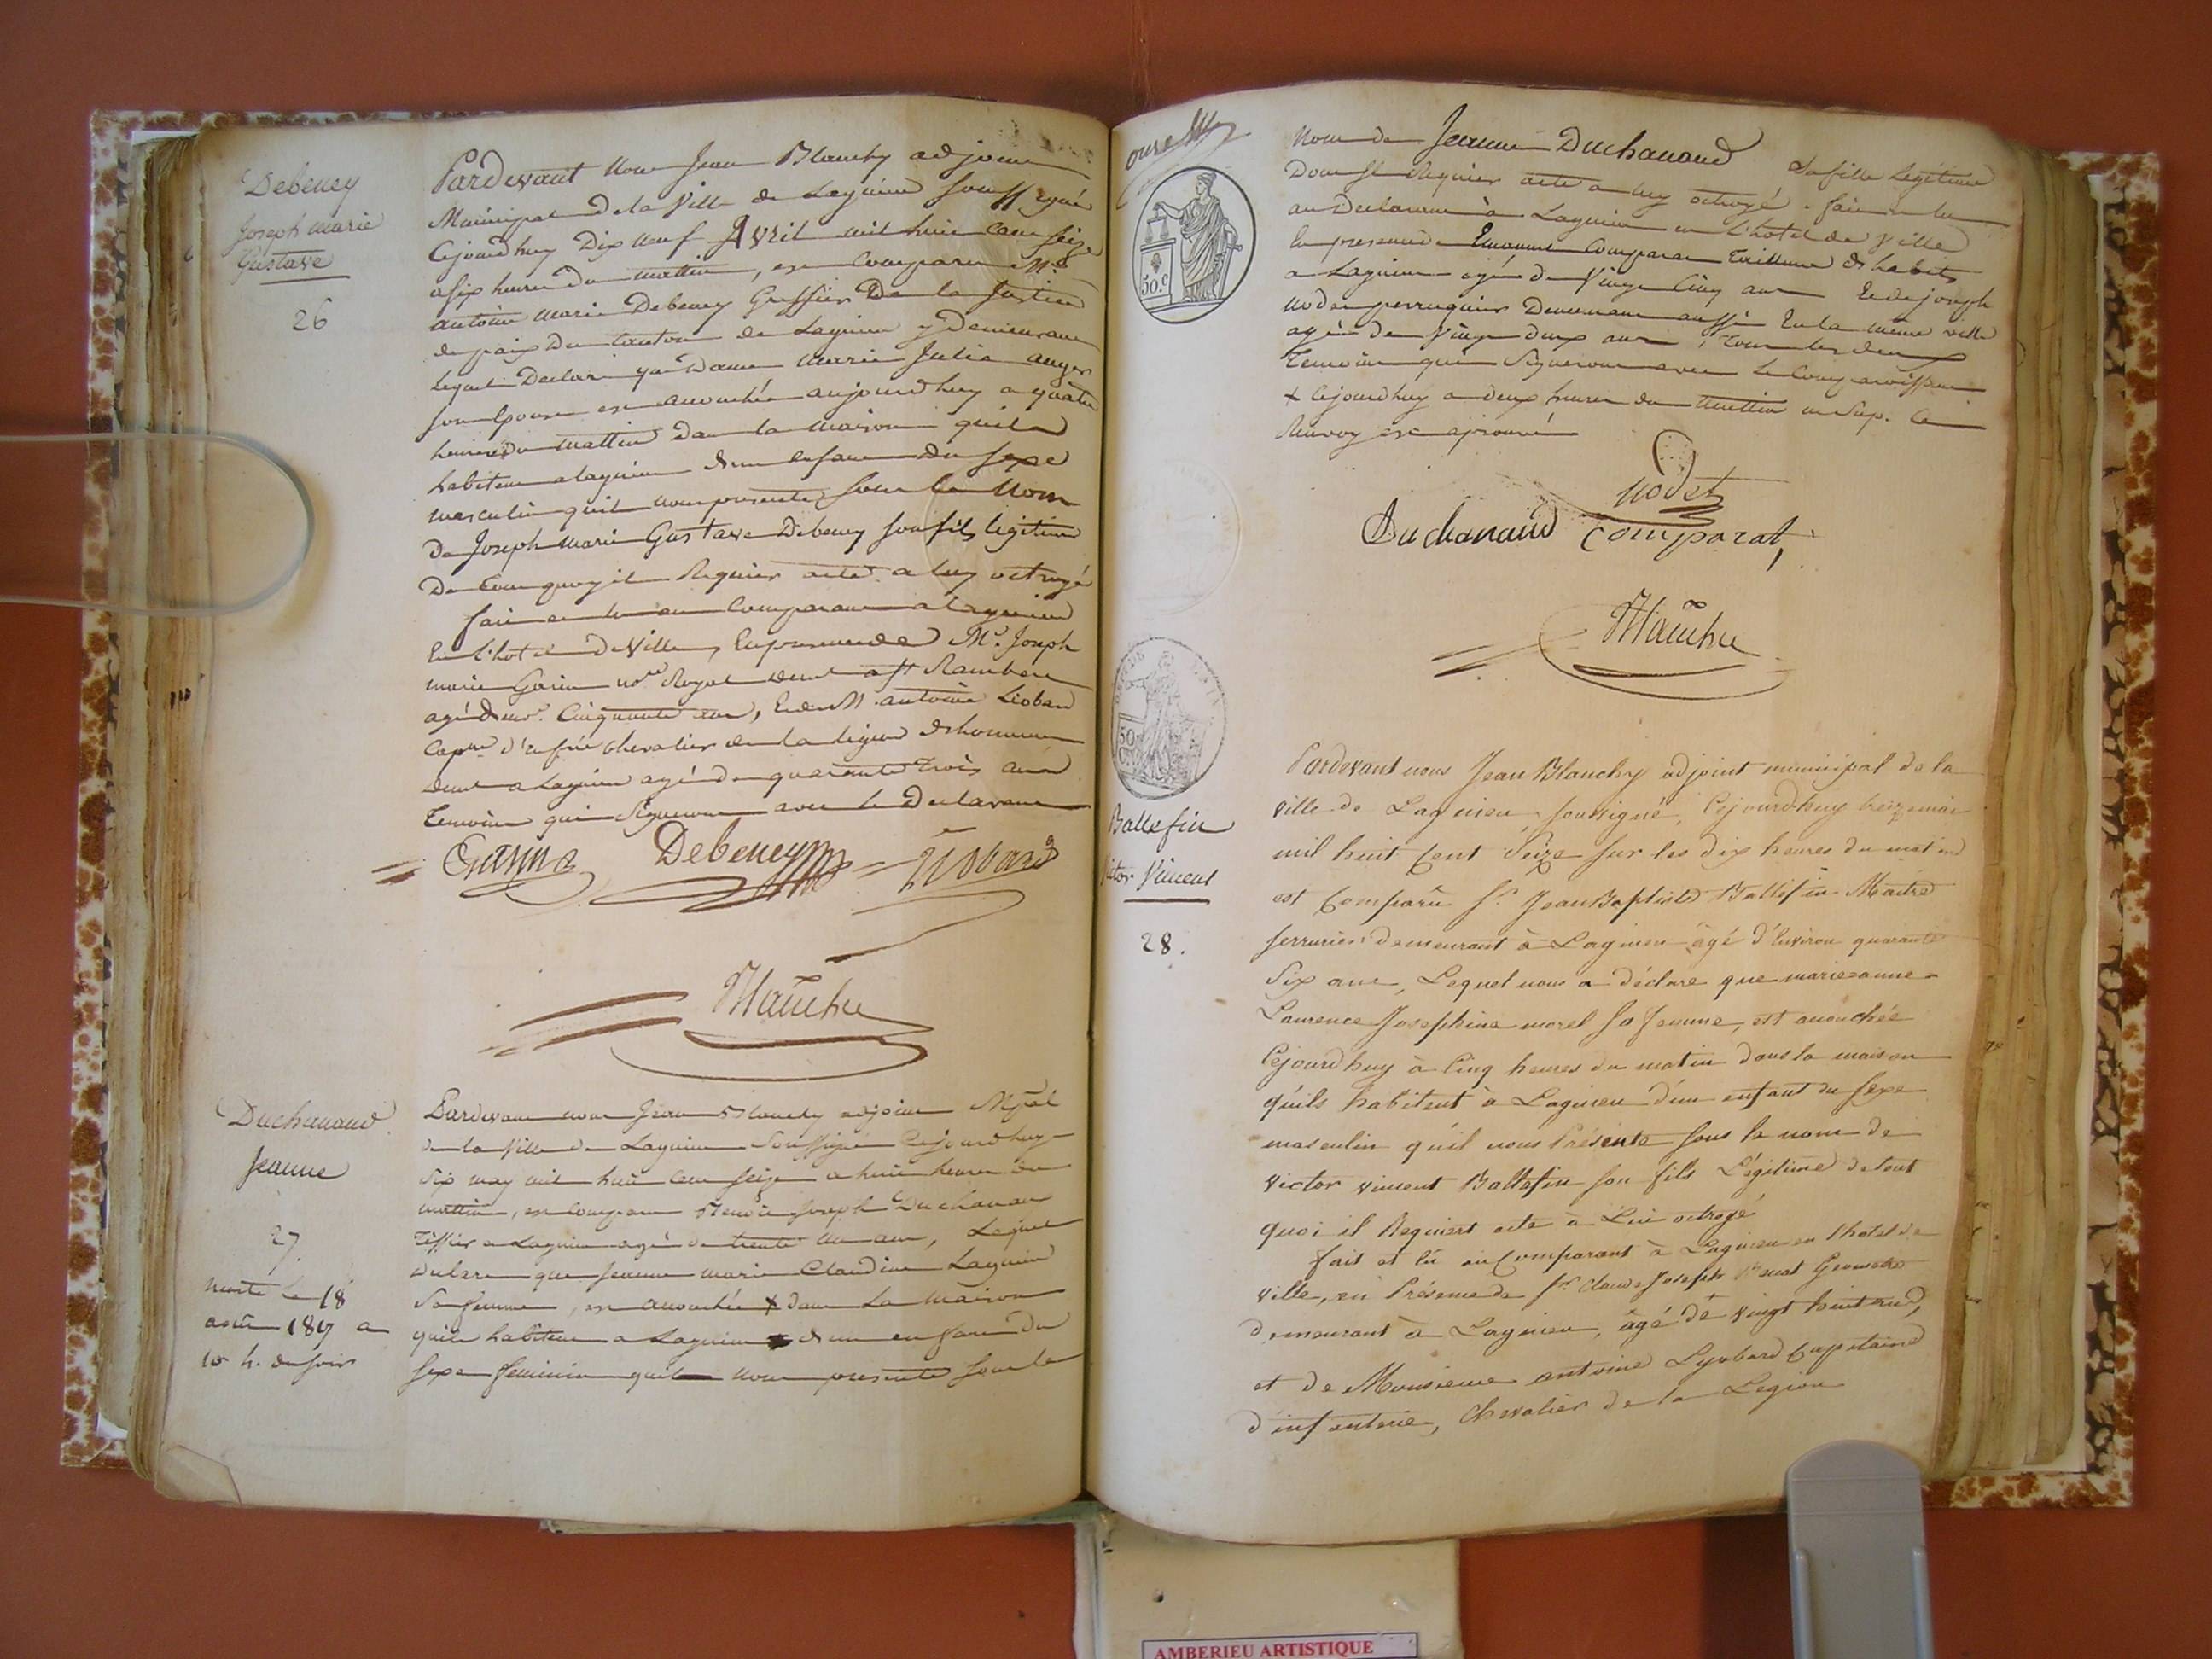 Debeney
Joseph Marie
Gustave
26
Pardevant Nous Jean Blanchy adjoint
Municipal de la Ville de Lagnieu soussigné
Cejourdhuy Dix neuf Avril mil huit cent seize
a six heures du mattin, est Comparu Mr
antoine marie Debeney Greffier De la Justice
de paix Du Canton de Lagnieu y Demeurant
lequel Declare que Dame Marie Julie auger
son Epouse est accouchée aujourdhuy a quatre
heures du mattin Dans la Maison quils
habitent a lagnieu d'un enfant du sexe
masculin quil nous presente sous le Nom
De Joseph Marie Gustave Debeney son fils legitime
De tout quoy il Requier acte a luy octroyé
fait et lu au Comparant a lagnieu
En l'hotel de Ville, En presence de Mr. Joseph
marie Garin nore Royal demt a st Rambert
agé de Cinquante ans, Et de M antoine Liobard
Capne d'infrie chevalier de la legion d'honneur
demt a Lagnieu agé de quarante trois ans
Temoins qui Signeront avec le Declarant
Garin Debeney Liobard
Blanchy
Duchanaud
Jeanne
27
morte le 18
aout
10 h. du soir
Pardevant nous Jean Blanchy adjoint Mpal
de la Ville de Lagnieu Soussigné Cejourdhuy
six may mil huit cent seize a huit heures du
mattin, est Comparu Benoit Joseph Duchanaud
Tissier a Lagnieu agé de trente un ans, Lequel
declare que Jeanne marie Claudine Lagnieu
Sa femme, est accouchée + dans La Maison
quils habitent a Lagnieu d'un enfant Du
sexe feminin quil nous presente sous le
onze
50.c
nom de Jeanne Duchanaud Sa fille Légitime
Dont Il Requier acte a luy octroyé. fait et lu
au Declarant à Lagnieu en L'hotel de Ville
En presence de Comparat Tailleur d'habits
a Lagnieu agé de Vingt Cinq ans Et de joseph
nodet perruquier Demeurant aussi En la même ville
agé de Vingt deux ans, Tous les deux
Temoins qui Signeront avec le Comparoissant
+ Cejourdhuy a deux heures du mattin Ce
Renvoy est aprouvé
nodet
Duchanaud Comparat
Blanchy
50
Ballefin
Victor Vincent
28.
Pardevant nous Jean Blanchy adjoint municipal de la
ville de Lagnieu, soussigné, Cejourd'huy treize mai
mil huit Cent Seize sur les dix heures du matin
est Comparu Sr. Jean Baptiste Ballefin Maitre
serrurier demeurant à Lagnieu âgé d'Environ quarante
Six ans, Lequel nous a déclaré que marie anne
Laurence Josephine morel sa femme, est accouchée
Cejourd'huy à Cinq heures du matin dans la maison
qu'ils habitent à Lagnieu d'un enfant du sexe
masculin qu'il nous Présente sous le nom de
victor vincent Ballefin son fils Légitime de tout
quoi il Requiert acte à Lui octroyé
fait et lû au Comparant à Lagnieu en l'hotel de
ville, en Présence de Sr. Claude Joseph Geometre
demeurant à Lagnieu, âgé de vingt huit ans,
et de Monsieur antoine Lyobard Capitaine
d'infanterie, Chevalier de la Légion
AMBERIEU ARTISTIQUE